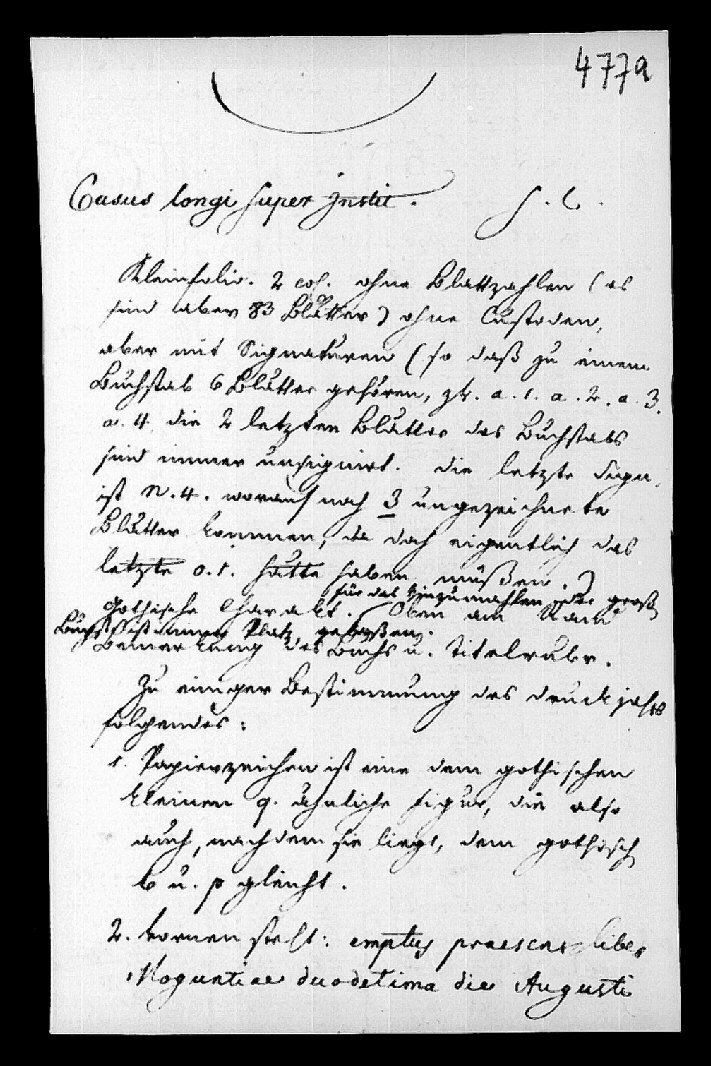 4779
Casus longi super Instit. s. l.
Kleinfolio. 2 col. ohne Blattzahlen (es
sind aber 83 Blätter) ohne Custoden,
aber mit Signaturen (so daß zu einem
Buchstab 6 Blätter gehören, zb. a. 1. a. 2. a. 3.
a. 4. die 2 letzten Blätter des Buchstabs
sind immer unsignirt. die letzte Sign.
ist N. 4. worauf noch 3 ungezeichnete
Blätter kommen, da doch eigentlich das
letzte o. 1. hätte haben müßen.)
Gothische Charakt. für das Hinzumahlen der groß
Buchst. ist immer Platz gelaßen. Oben am Rand
Bemerkung des Buchs u. Titelrubr.
Zu einiger Bestimmung des Druckjahrs
folgendes:
1. Papierzeichen ist eine dem gothischen
kleinen q. ähnliche Figur, die also
auch, nachdem sie liegt, dem gothisch
b u. p gleicht.
2. vornen steht: emptus praesens liber
Moguntiae duodetima die Augusti